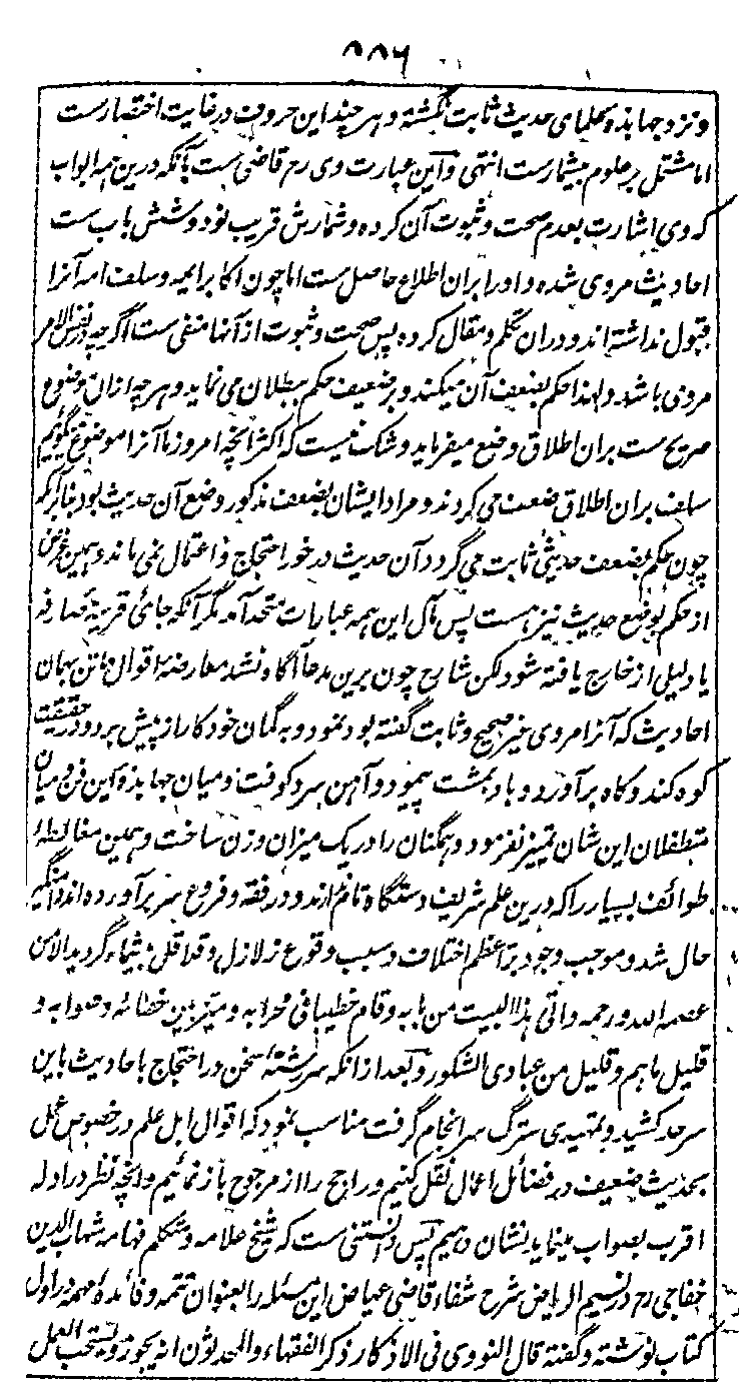 ۸۸۶
ونزد جهابذه و علمای حدیث ثابت نگشته و هر چند این حروف در غایت اختصارست
اما مشتمل بر علوم بیشمارست انتهی و این عبارت وی رح قاضی ست بآنکه درین همه ابواب
که وی اشارت بعدم صحت و ثبوت آن کرده و شمارش قریب نود و شش باب ست
احادیث مروی شده و او را بران اطلاع حاصل ست اما چون اکابر ایمه و سلف امه آنرا
قبول نداشته اند و دران تکلم و مقال کرده پس صحت و ثبوت از آنها منفی ست اگرچه در نفس الامر
مروی باشد ولهذا حکم بضعف آن میکند و بر ضعیف حکم ببطلان می نماید و هرچه ازان وضوع
صریح ست بران اطلاق وضع میفرماید و شک نیست که اکثر آنچه امروز ما آنرا موضوع گوئیم
سلف بران اطلاق ضعف می کردند و مراد ایشان بضعف مذکور وضع آن حدیث بود بنابر آنکه
چون حکم بضعف حدیثی ثابت می گردد آن حدیث در خور احتجاج و اعتمال نمی ماند و همین غرض
از حکم بوضع حدیث نیز هست پس مآل این همه عبارات متحد آمد مگر آنکه جائی قرینه صارفه
یا دلیلی از خارج یافته شود لکن شارح چون برین مدعا آگاه نشد معارضه اقوال ماتن بهمان
احادیث که آنرا مروی غیر صحیح و ثابت گفته بود نمود و به گمان خود کار از پیش برد و در حقیقت
کوه کند و کاه برآورد و باد بمشت پیمود و آهن سرد کوفت و میان جهابذه این فن و میان
متطفلان این شان تمییز نفرمود و همگنان را در یک میزان وزن ساخت و همین مغالطه
طوائف بسیار را که درین علم شریف دستگاه تام ندارند و در فقه و فروع سر برآورده اند دامنگیر
حال شد و موجب وجود اعظم اختلاف و سبب وقوع زلازل و قلاقل گردید الا من
عصمه الله و رحمه و اتی هذا البیت من بابه و قام خطیبا فی محرابه و میز بین خطائه و صوابه و
قلیل ما هم و قلیل من عبادی الشکور و بعد ازانکه سررشته سخن در احتجاج باحادیث باین
سرحد کشید و تمهیدی سترگ سرانجام گرفت مناسب نمود که اقوال اهل علم در خصوص عمل
بحدیث ضعیف در فضائل اعمال نقل کنیم و راجح را از مرجوح باز نمائیم و آنچه نظر در ادله
اقرب بصواب مینماید نشان دهیم پس دانستنی ست که شیخ علامه و متکلم فهامه شهاب الدین
خفاجی رح در نسیم الریاض شرح شفاء قاضی عیاض این مسئله را بعنوان تتمه و فائده مهمه در اول
کتاب نوشته و گفته قال النووی فی الاذکار ذکر الفقهاء والمحدثون انه یجوز ویستحب العمل